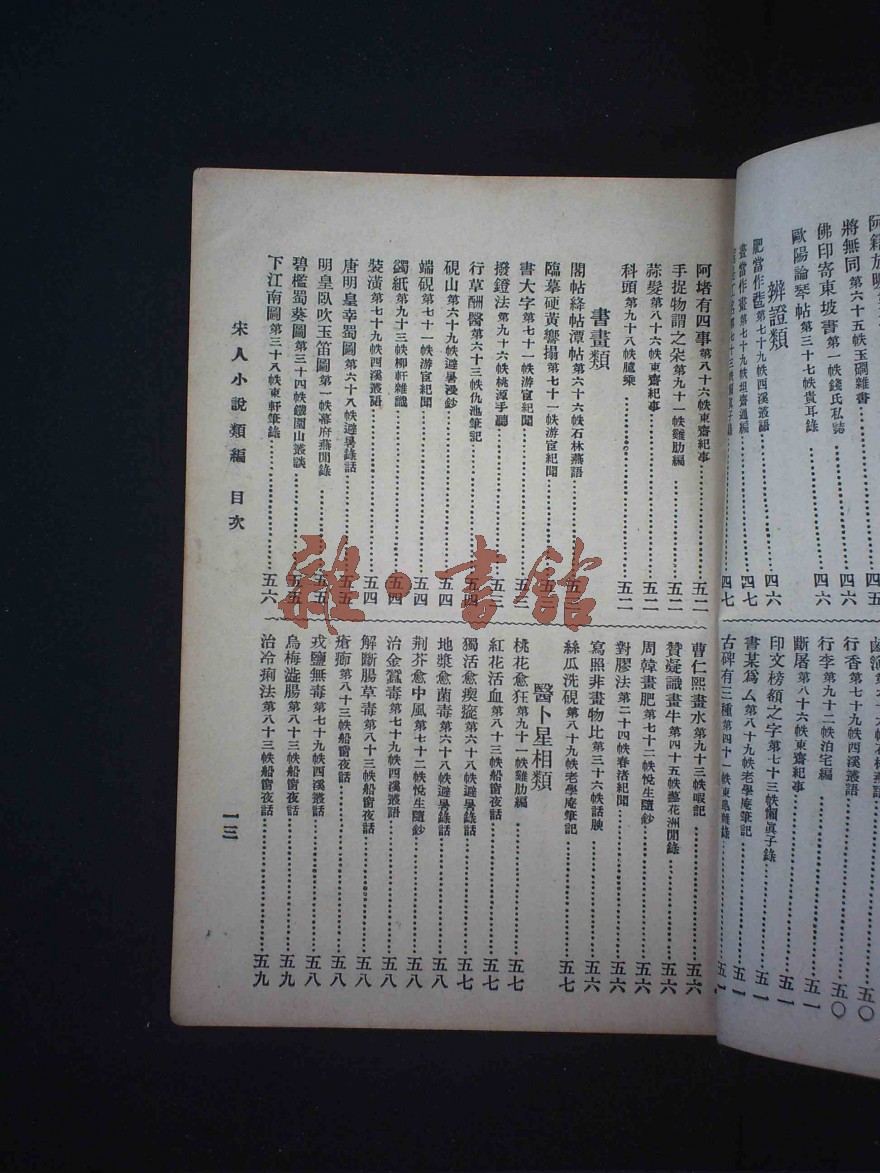 將無同第六十五帙玉礀雜書四六
佛印寄東坡書第一帙錢氏私誌四六
歐陽論琴帖第三十七帙貴耳錄四六
辨證類
肥當作萉第七十九帙四溪叢語四六
畫當作畫第七十九帙坦齋通編四七
四七
五〇
行香第七十九帙四溪叢語五〇
行李第九十二帙泊宅編五一
斷屠第八十六帙東齋紀事五一
印文榜額之字第七十三帙懶眞子錄五一
書某爲厶第八十九帙老學庵筆記五一
古碑有三種第四十一帙
阿堵有四事第八十六帙東齋紀事五二
手捉物謂之朵第九十一帙雞肋編五二
蒜髮第八十六帙東齋紀事五二
科頭第九十八帙臆乘五二
書畫類
閣帖絳帖潭帖第六十六帙石林燕語五三
臨摹硬黃響搨第七十一帙游宦紀聞五三
書大字第七十一帙游宦紀聞五三
撥鐙法第九十六帙桃源手聽五三
行草酬醫第六十三帙仇池筆記五四
硯山第六十九帙避暑漫鈔五四
端硯第七十一帙游宦紀聞五四
蠲紙第九十三帙柳軒雜識五四
裝潢第七十九帙四溪叢語五四
唐明皇幸蜀圖第六十八帙避暑錄話五五
明皇臥吹玉笛圖第一帙幕府燕閒錄五五
碧檻蜀葵圖第三十四帙鐵圍山叢談五五
下江南圖第三十八帙東軒筆錄五六
曹仁熙畫水第九十三帙暇記五六
贊凝識畫牛第四十五帙藝花洲閒錄五六
周韓畫肥第七十二帙悅生隨鈔五六
對膠法第二十四帙春渚紀聞五六
寫照非畫物比第三十六帙話腴五六
絲瓜洗硯第八十九帙老學庵筆記五七
醫卜星相類
桃花愈狂第九十一帙雞肋編五七
紅花活血第八十三帙船窗夜話五七
獨活愈瘈㾕第六十八帙避暑錄話五七
地漿愈菌毒第六十八帙避暑錄話五八
荆芥愈中風第七十二帙悅生隨鈔五八
治金蠶毒第七十九帙四溪叢語五八
解斷腸草毒第八十三帙船窗夜話五八
瘡痏第八十三帙船窗夜話五八
戎鹽無毒第七十九帙四溪叢話五八
烏梅澁腸第八十三帙船窗夜話五九
治冷痢法第八十三帙船窗夜話五九
宋人小說類編 目次
一三
雜·書館